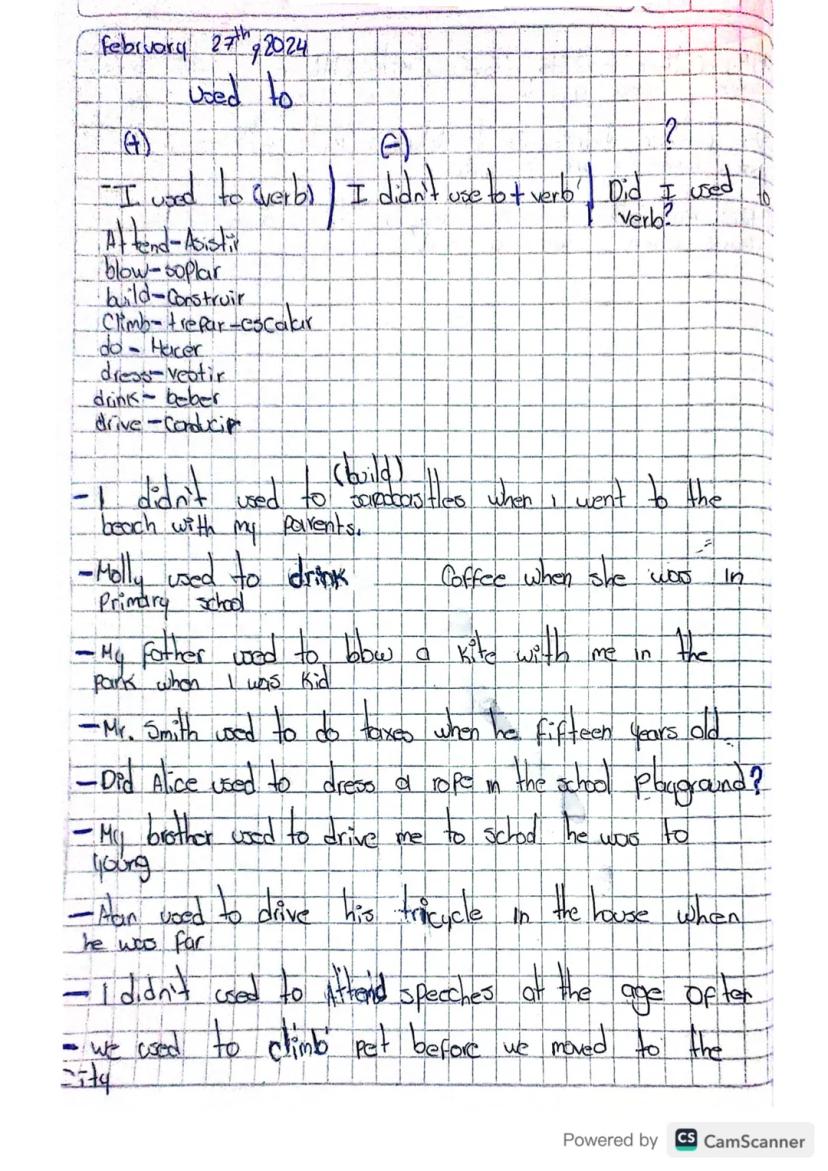 February 27th, 2024
Used to
(+) (-) ?
-I used to (verb) | I didn't use to + verb | Did I used to
verb?
Attend-Asistir
blow-soplar
build-Construir
Climb-trepar-escalar
do - Hacer
dress-vestir
drink- beber
drive-Conducir
(build)
-I didn't used to sandcastles when i went to the
beach with my parents.
-Molly used to drink Coffee when she was in
Primary school
-My father used to blow a kite with me in the
park when I was kid
-Mr. Smith used to do taxes when he fifteen years old.
-Did Alice used to dress a rope in the school playground?
-My brother used to drive me to school he was to
young
-Alan used to drive his tricycle in the house when
he was
-I didn't used to Attend speeches at the age of ten
-we used to climb pet before we moved to the
city
Powered by CS CamScanner